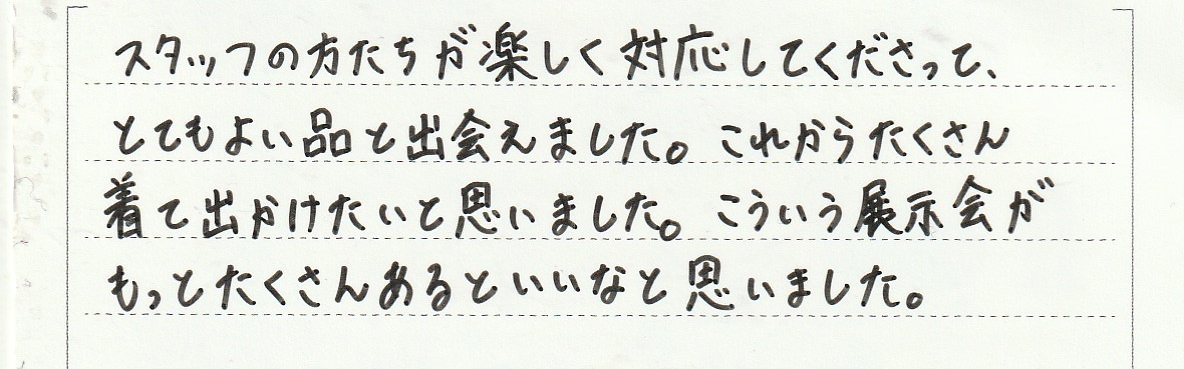 スタッフの方たちが楽しく対応してくださって、
とてもよい品と出会えました。これからたくさん
着て出かけたいと思いました。こういう展示会が
もっとたくさんあるといいなと思いました。